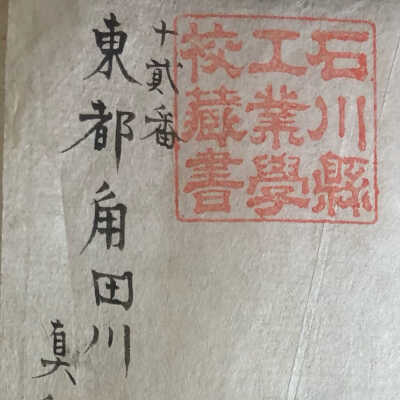 石川縣
工業學
校藏書
十貳番
東都角田川
真